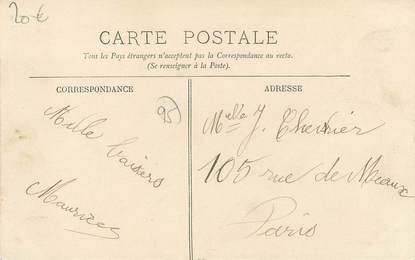 20 €
CARTE POSTALE
Tous les Pays étrangers n'acceptent pas la Correspondance au recto.
(Se renseigner à la Poste).
CORRESPONDANCE
ADRESSE
95
Mille baisers
Maurice
Melle J. Chevrier
105 rue de Meaux
Paris